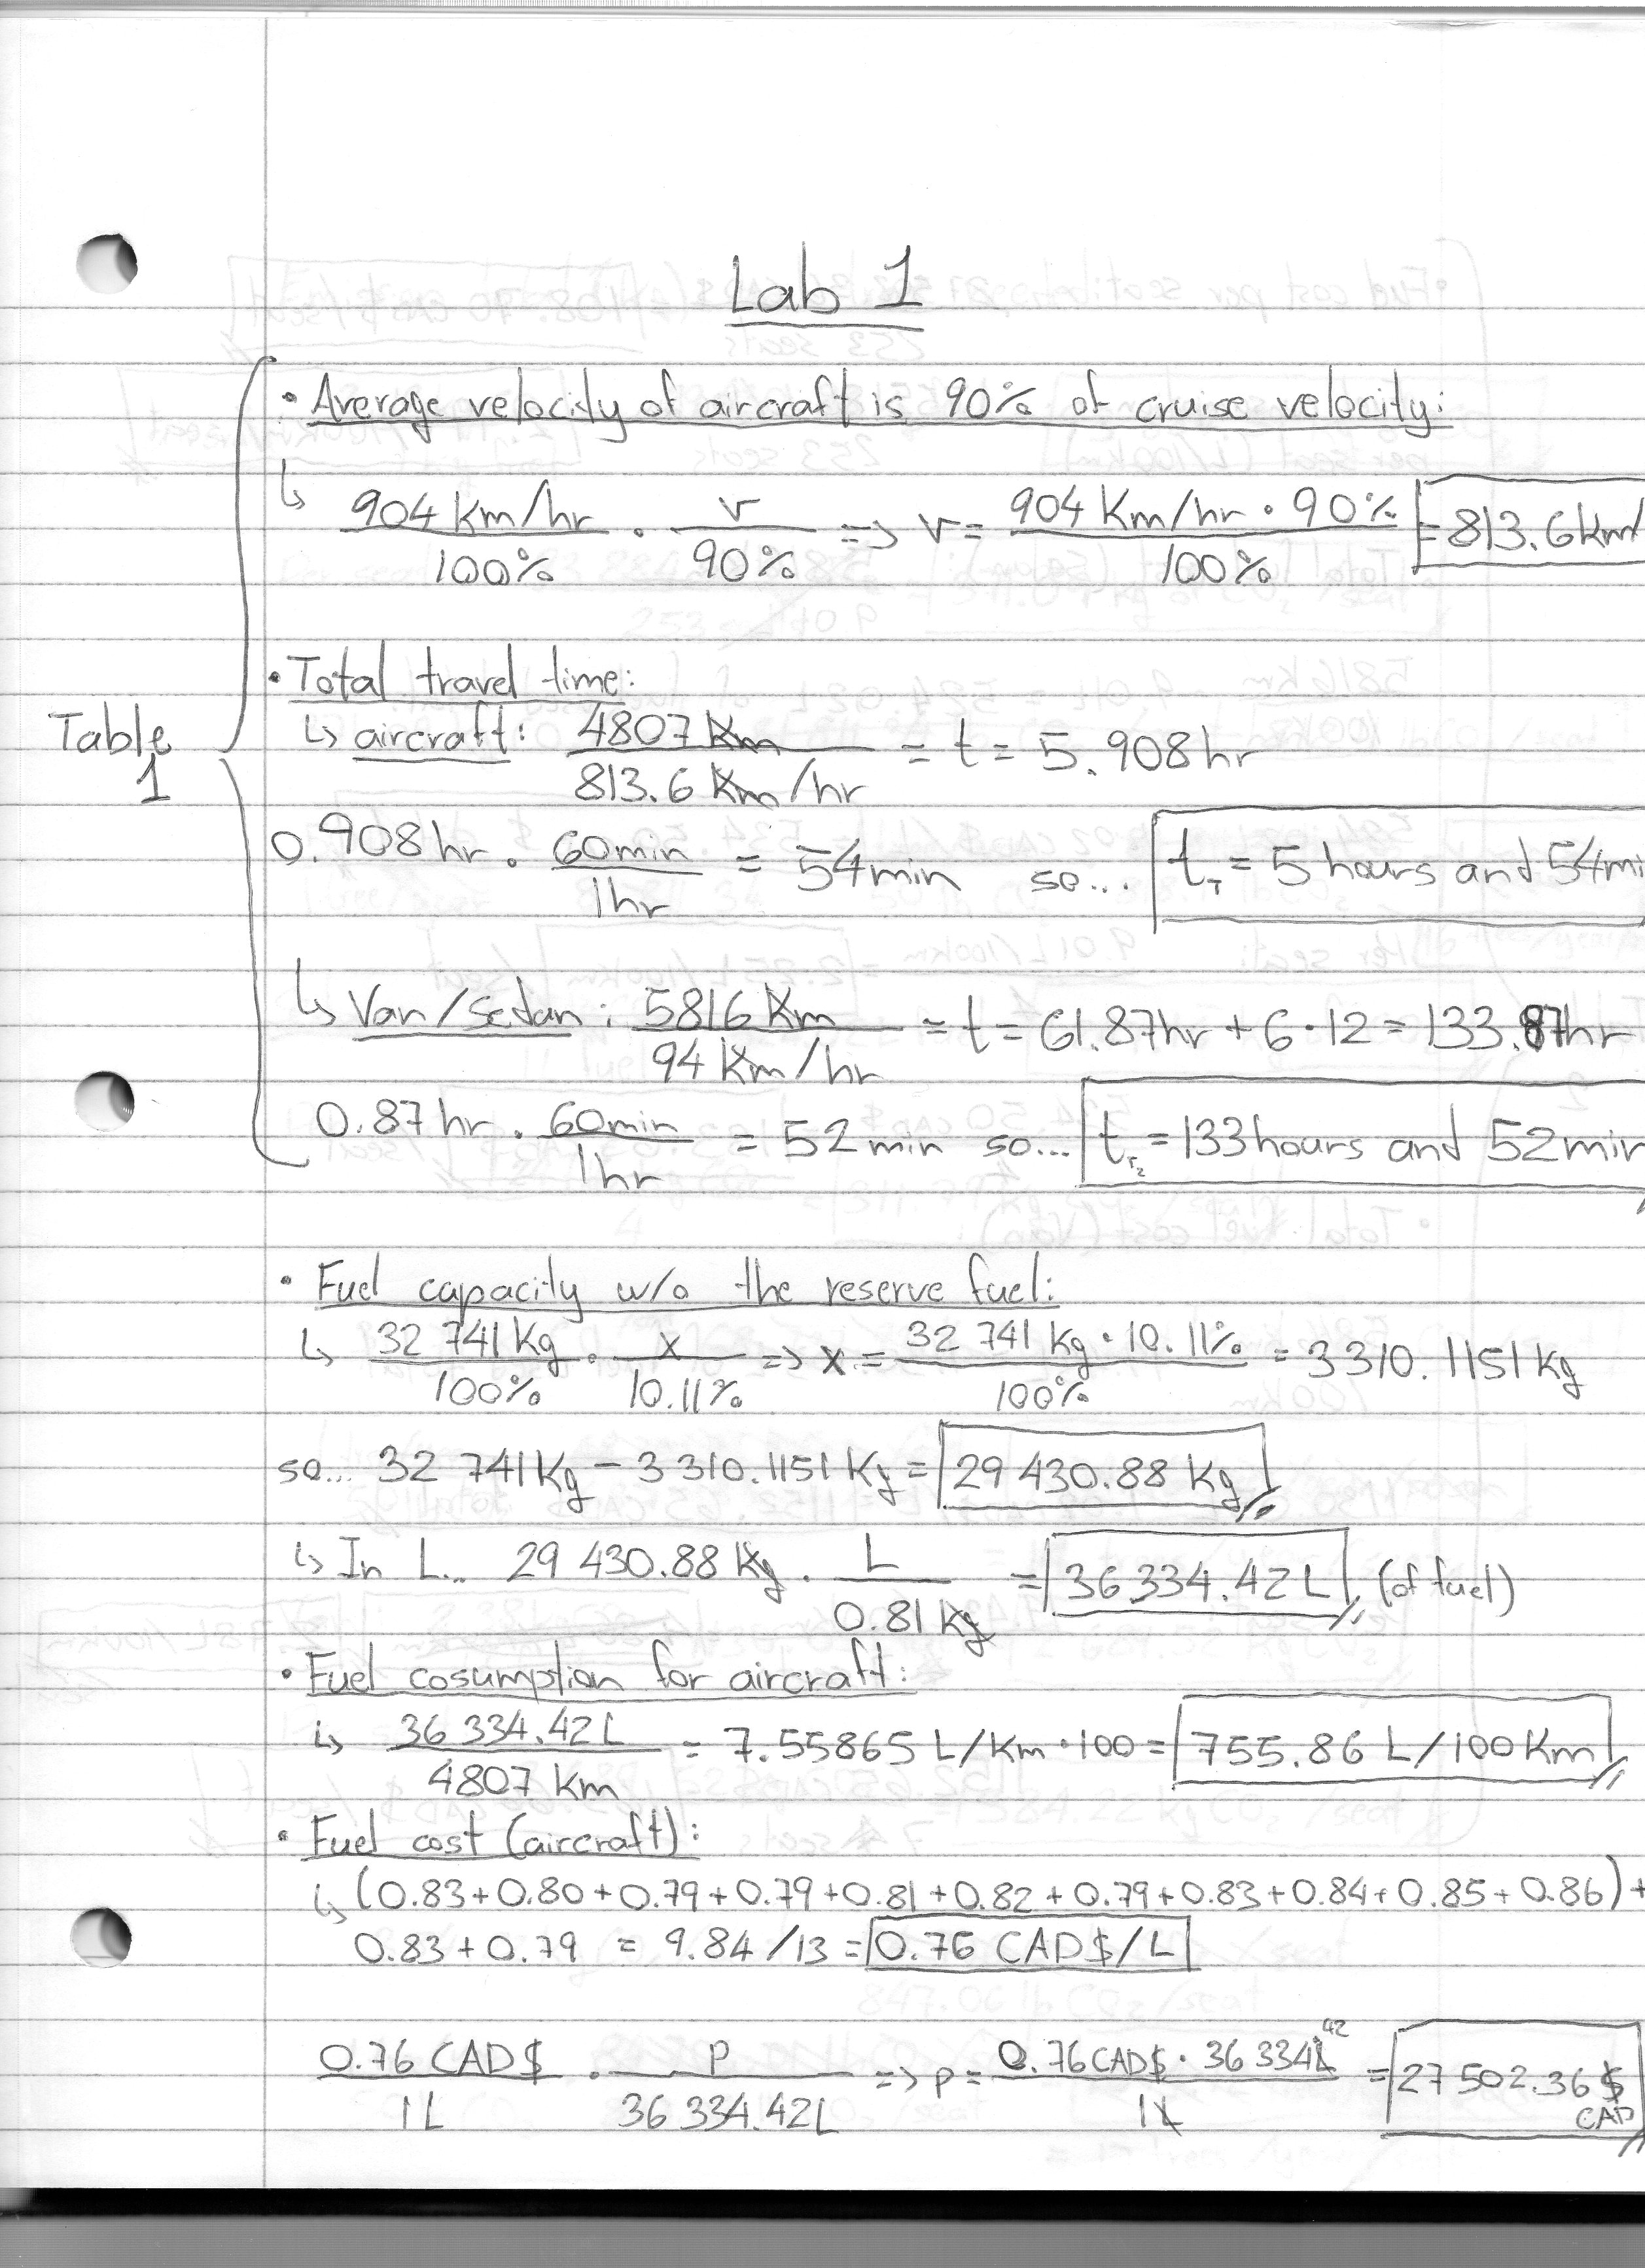 Lab 1
• Average velocity of aircraft is 90% of cruise velocity:
↳ 904 Km/hr / 100% · v / 90% => v = 904 Km/hr · 90% / 100% = 813.6 km/
• Total travel time:
Table 1
↳ aircraft: 4807 Km / 813.6 Km/hr = t = 5.908 hr
0.908 hr · 60min / 1hr = 54min so... t_T = 5 hours and 54mi
↳ Van/Sedan: 5816 Km / 94 Km/hr = t = 61.87hr + 6·12 = 133.87hr
0.87 hr · 60min / 1hr = 52min so... t_T2 = 133hours and 52min
• Fuel capacity w/o the reserve fuel:
↳ 32 741 Kg / 100% · x / 10.11% => x = 32 741 Kg · 10.11% / 100% = 3310.1151 Kg
so... 32 741 Kg − 3 310.1151 Kg = 29 430.88 Kg
↳ In L... 29 430.88 Kg · L / 0.81 Kg = 36 334.42 L (of fuel)
• Fuel cosumption for aircraft:
↳ 36 334.42 L / 4807 Km = 7.55865 L/Km · 100 = 755.86 L/100 Km
• Fuel cost (aircraft):
↳ (0.83+0.80+0.79+0.79+0.81+0.82+0.79+0.83+0.84+0.85+0.86)+
0.83+0.79 = 9.84/13 = 0.76 CAD$/L
0.76 CAD$ / 1L · P / 36 334.42L => P = 0.76 CAD$ · 36 334.42 L / 1L = 27 502.36 $ CAD